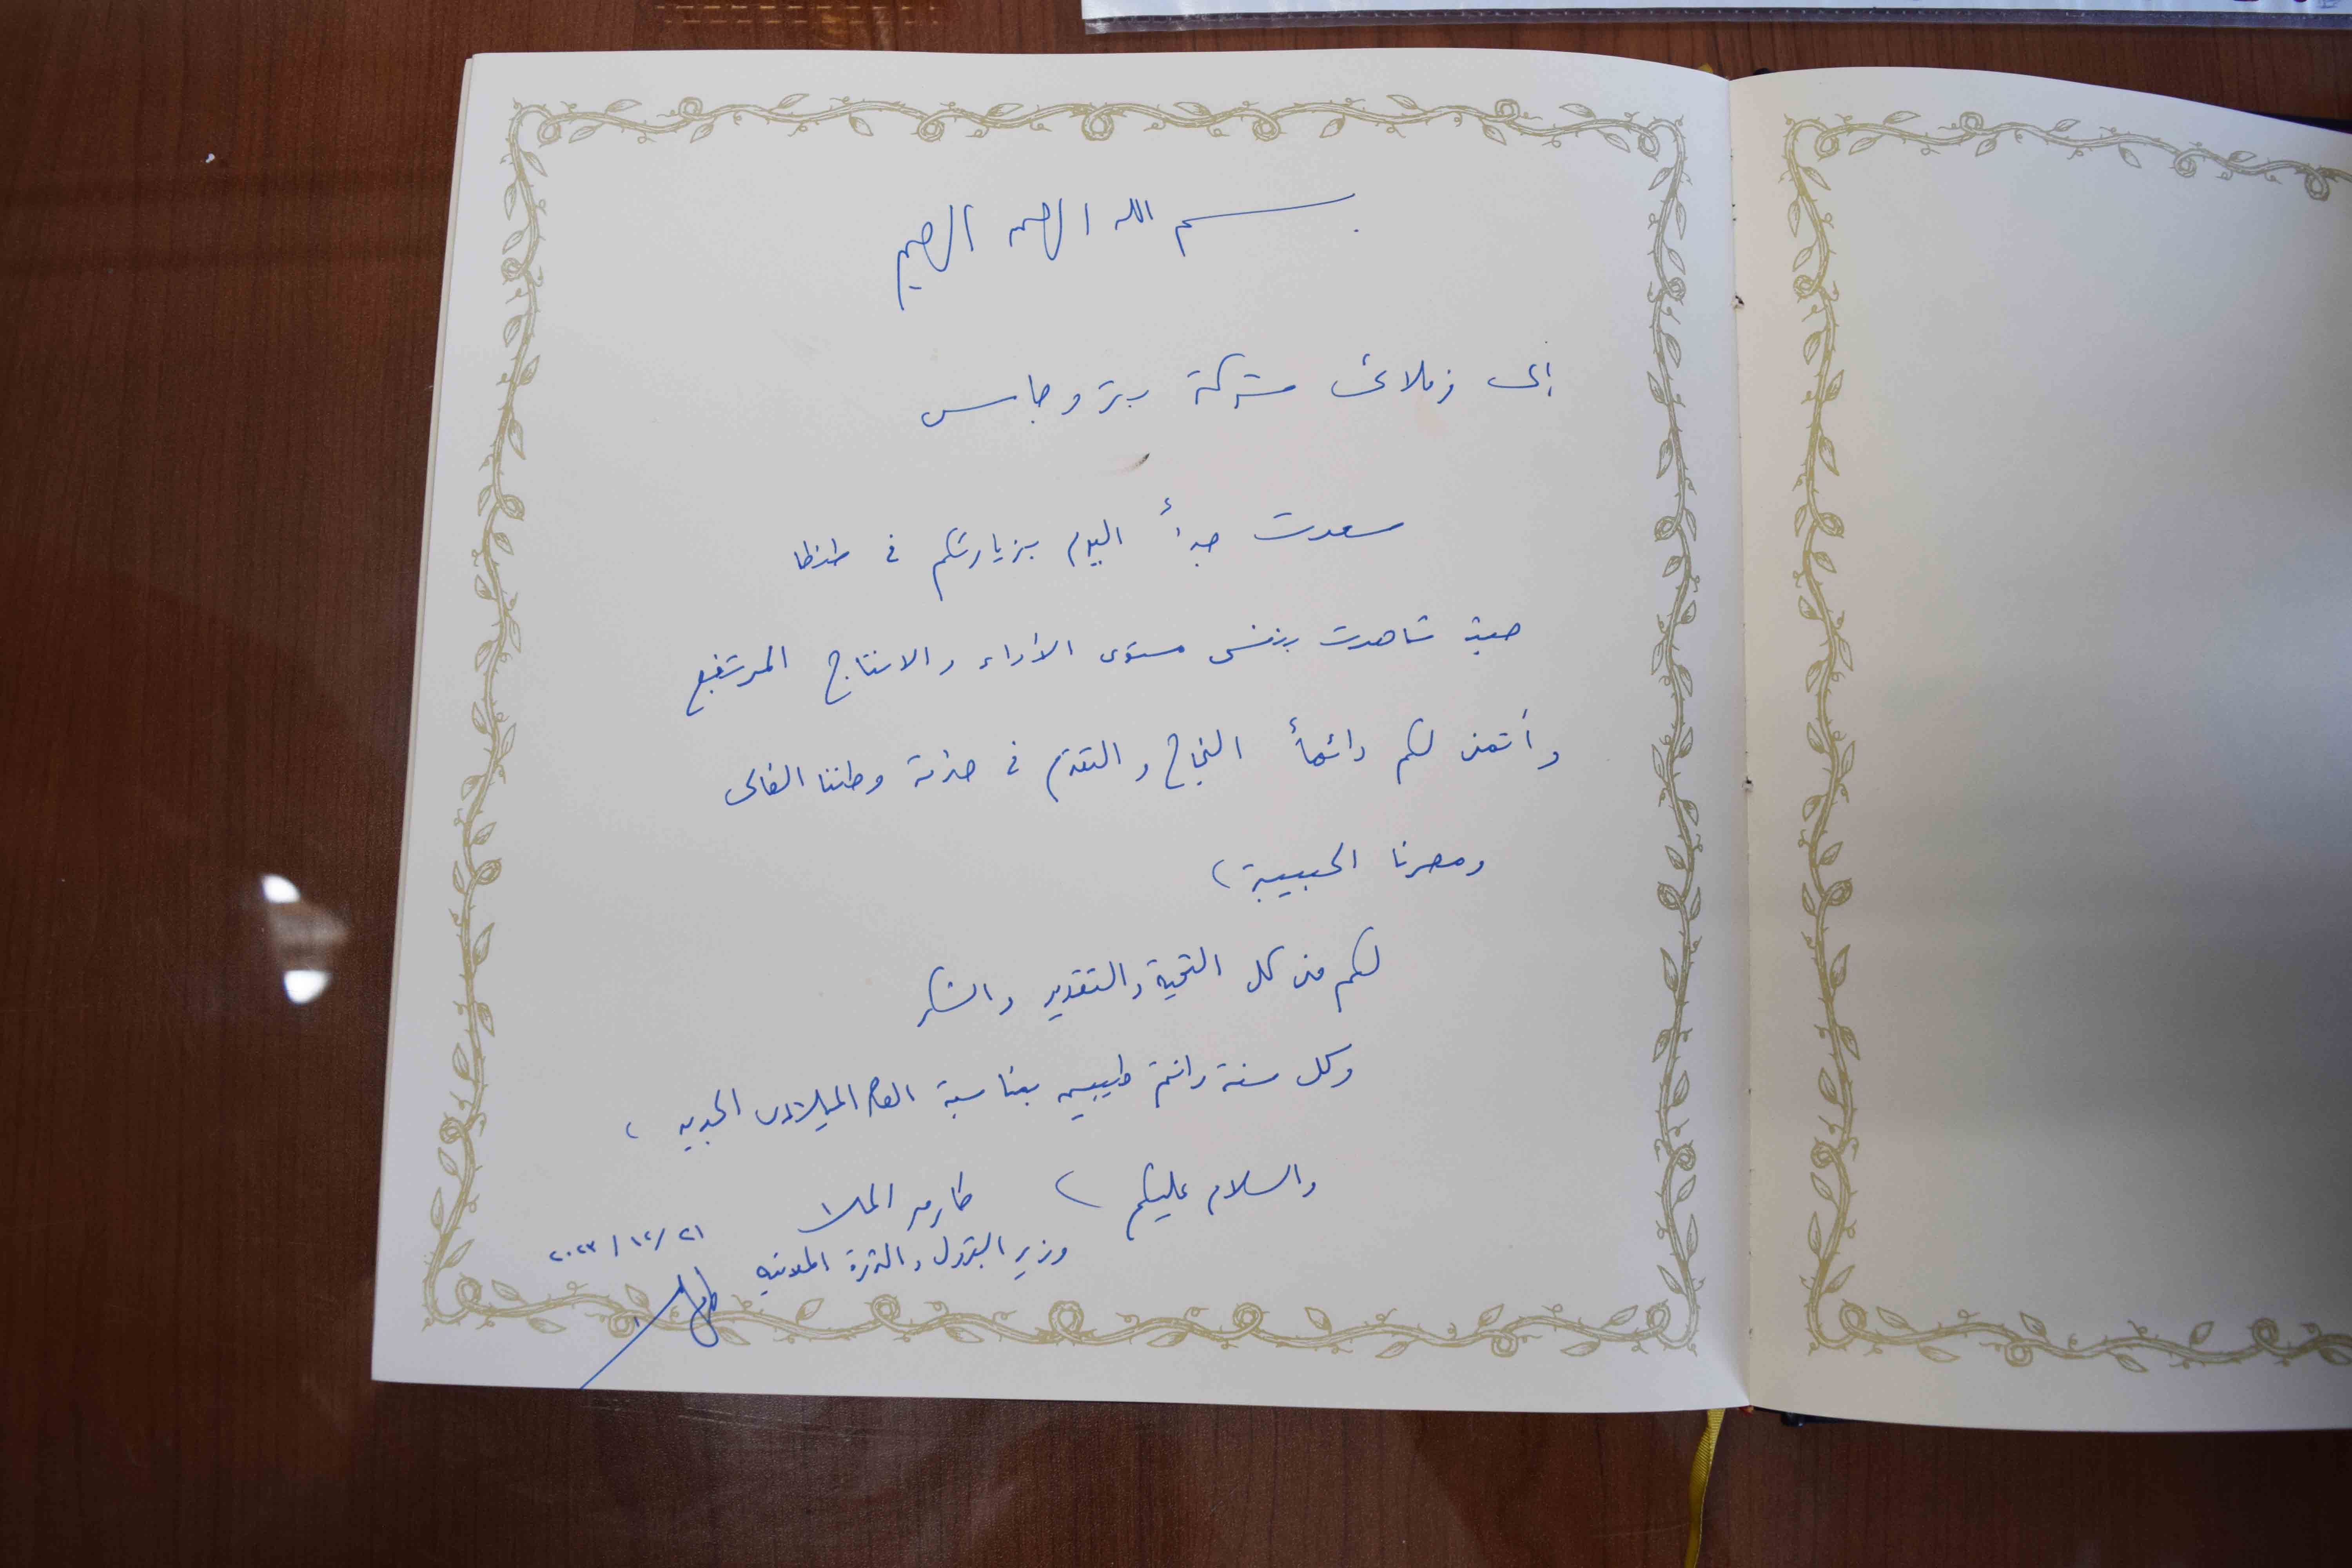 بسم الله الرحمن الرحيم
إلى زملائى شركة بتروجاس
سعدت جداً اليوم بزيارتكم فى طنطا
حيث شاهدت بنفسى مستوى الأداء والانتاج المرتفع
وأتمنى لكم دائماً النجاح والتقدم فى خدمة وطننا الغالى
ومصرنا الحبيبة،
لكم منى كل التحية والتقدير والشكر
وكل سنة وانتم طيبين بمناسبة العام الميلادى الجديد،
والسلام عليكم،
طارق الملا
وزير البترول والثروة المعدنية
٢١/١٢/٢٠٢٣